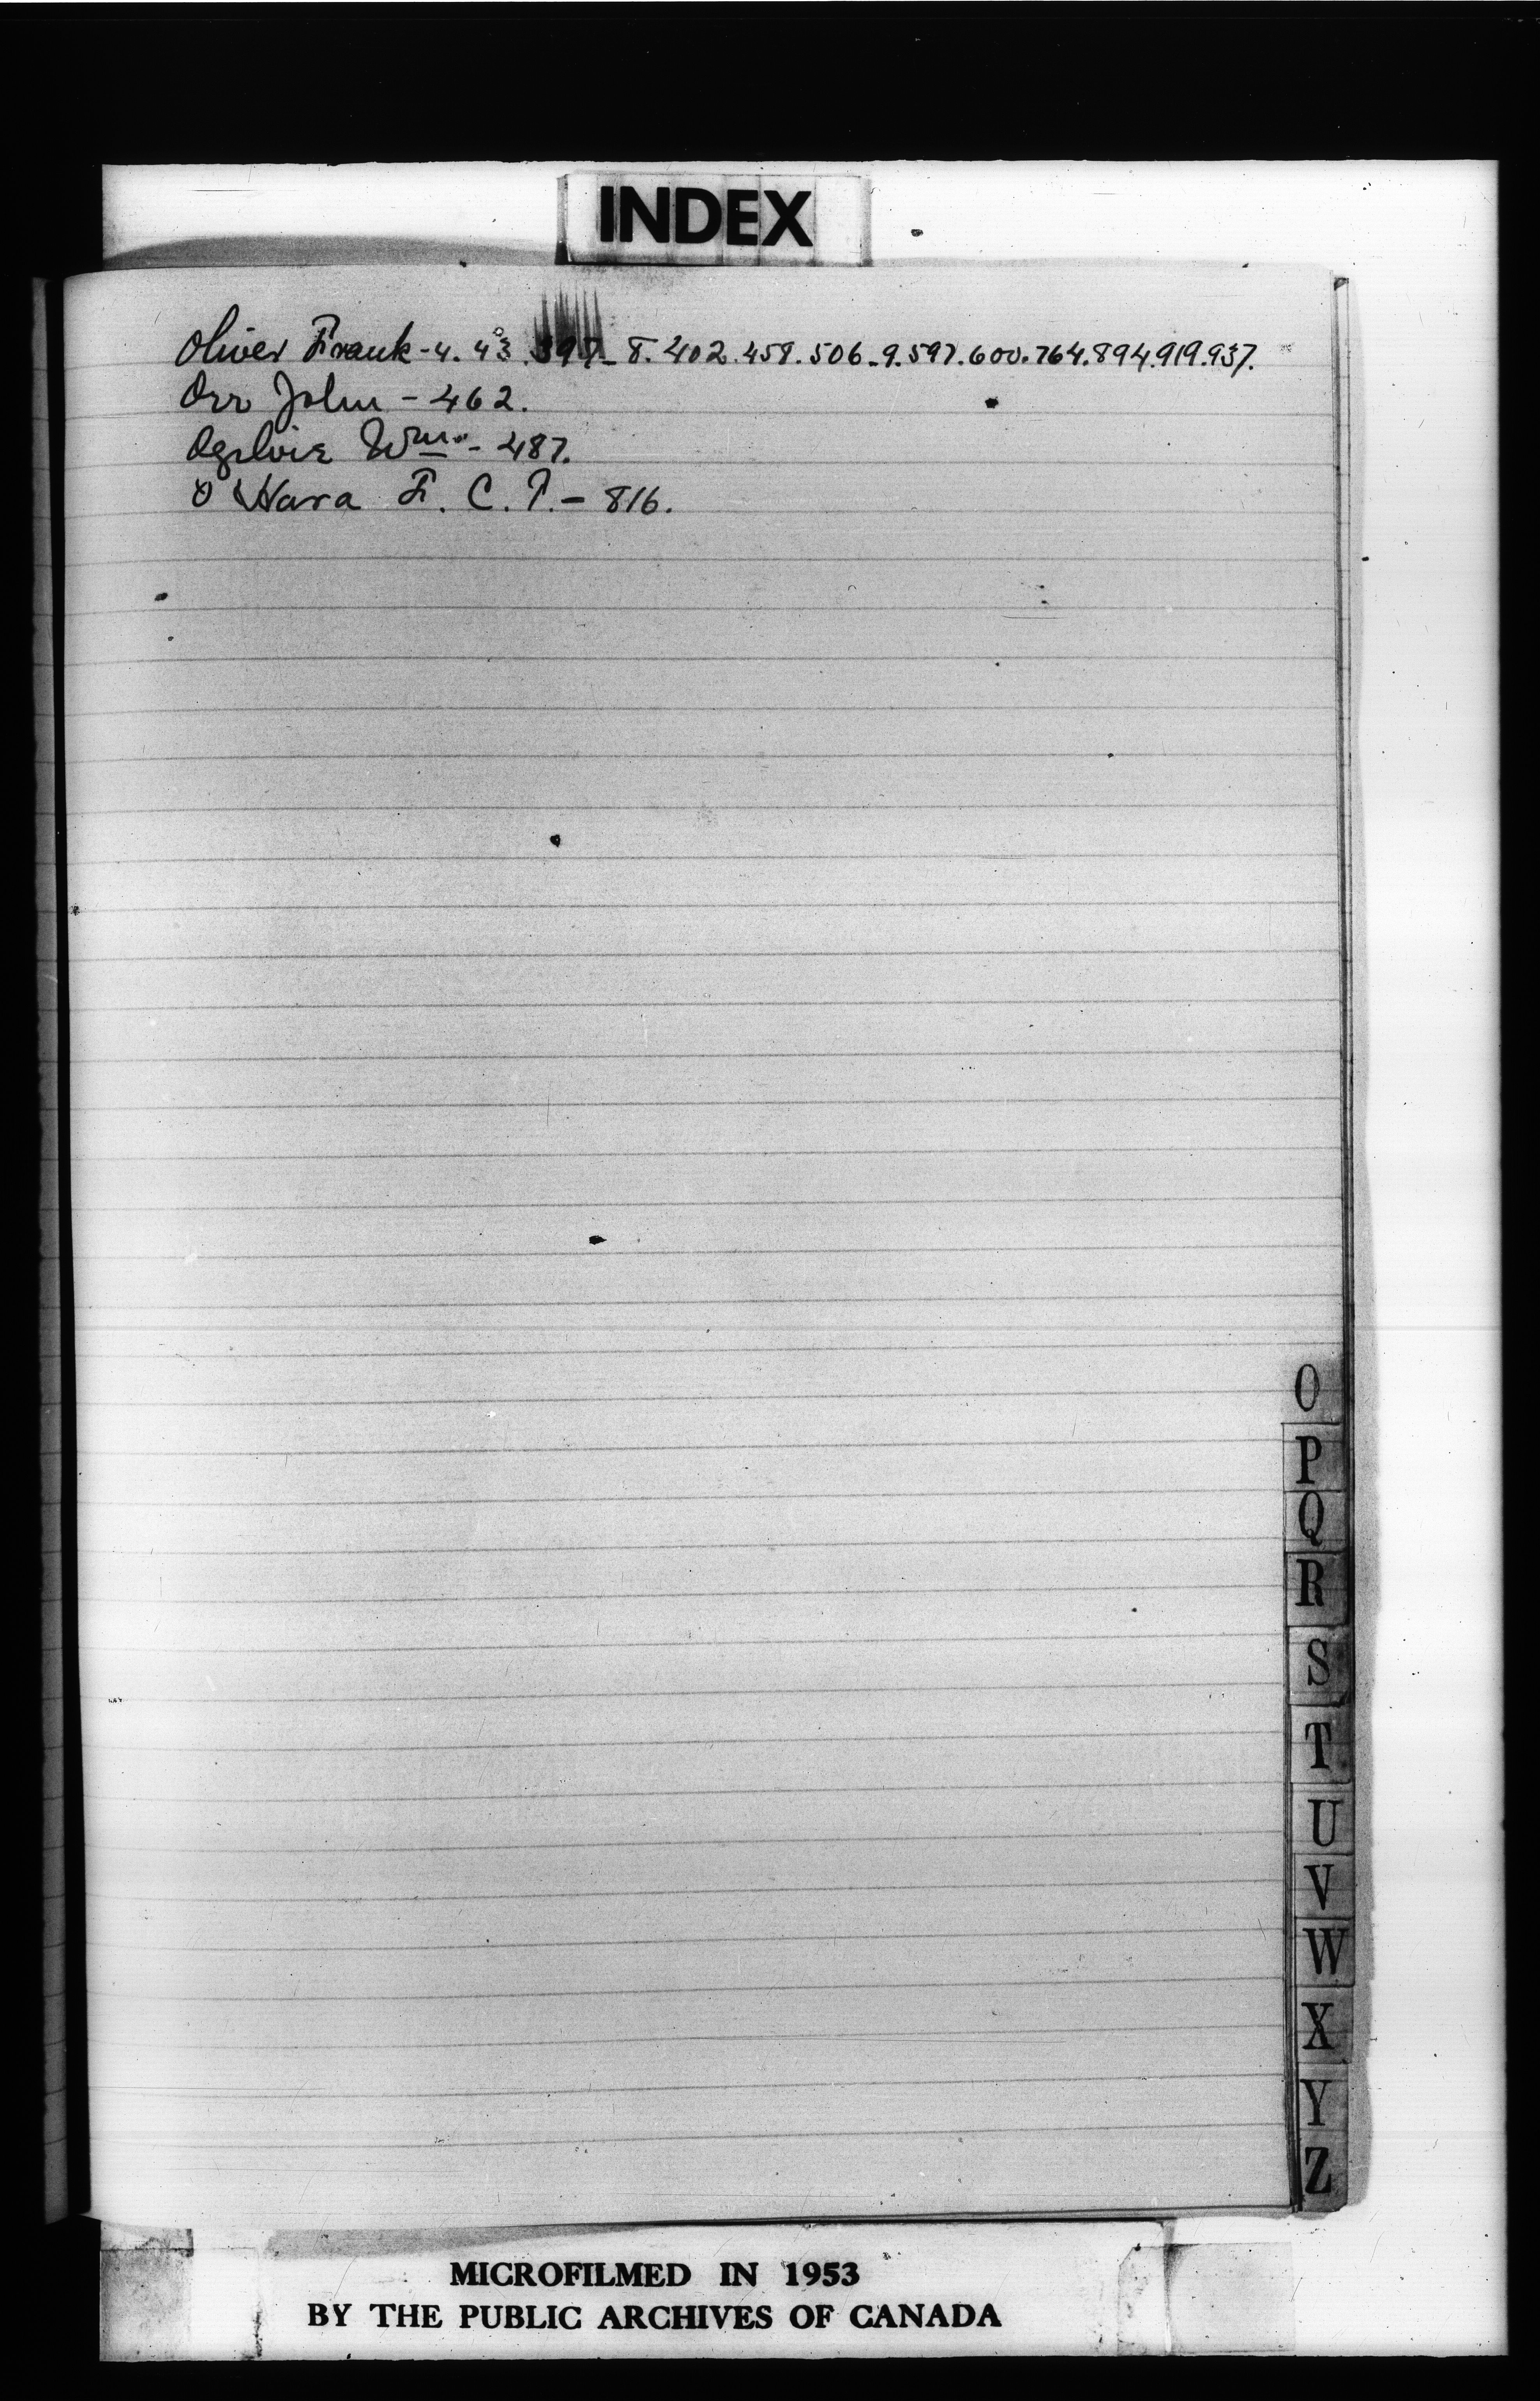 INDEX
Oliver Frank - 4. 43. 397 - 8. 402. 459. 506 - 9. 597. 600. 764. 894. 919. 937.
Orr John - 462.
Ogilvie Wm. - 487.
O'Hara F. C. T. - 816.
O
P
Q
R
S
T
U
V
W
X
Y
Z
MICROFILMED IN 1953
BY THE PUBLIC ARCHIVES OF CANADA